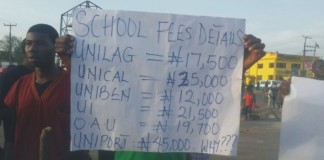 SCHOOL FEES DETAILS
UNILAG = ₦17,500
UNICAL = ₦35,000
UNIBEN = ₦12,000
UI = ₦21,500
OAU = ₦19,700
UNIPORT = ₦45,000 WHY???